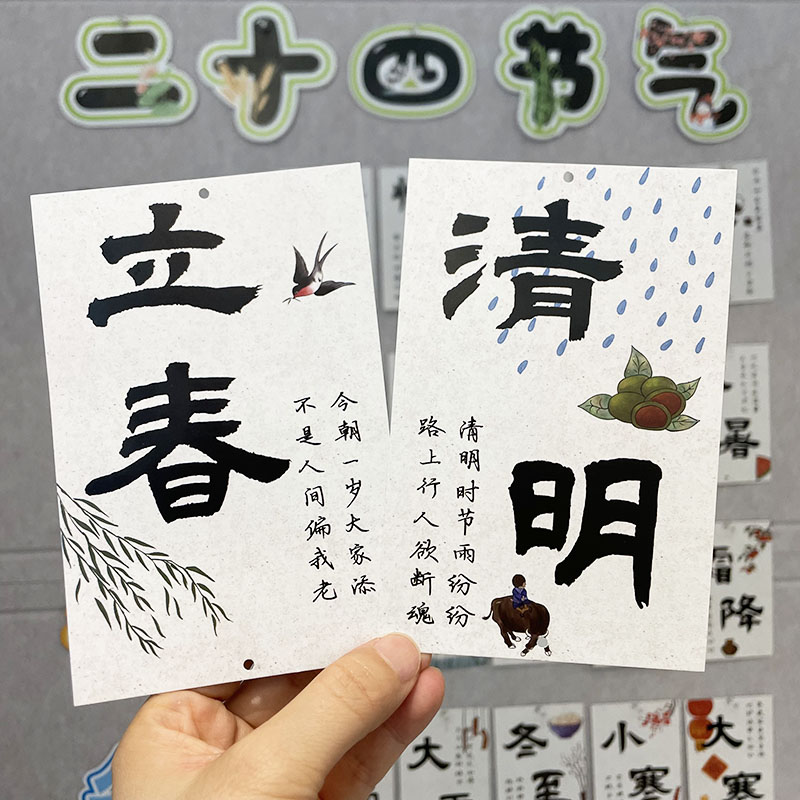 二十四节气
立春
今朝一岁大家添
不是人间偏我老
清明
清明时节雨纷纷
路上行人欲断魂
暑
霜降
大
冬至
小寒
大寒